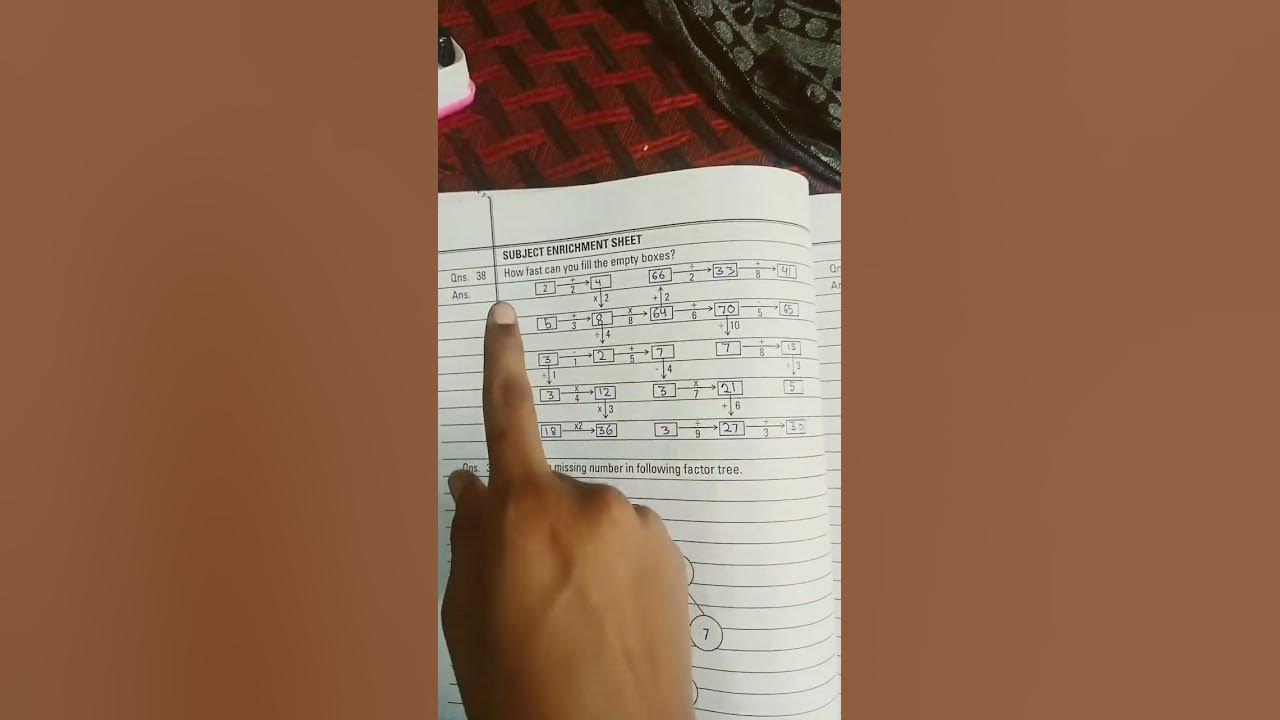 SUBJECT ENRICHMENT SHEET
Qns. 38 How fast can you fill the empty boxes?
Ans.
2 + 2 → 4 66 ÷ 2 → 33 + 8 → 41
x 2 + 2
5 + 3 → 8 x 8 → 64 + 6 → 70 - 5 → 65
÷ 4 ÷ 10
3 - 1 → 2 + 5 → 7 7 + 8 → 15
÷ 1 - 4 ÷ 3
3 x 4 → 12 3 x 7 → 21 5
x 3 + 6
18 x2 → 36 3 9 → 27 3 → 30
Qns. missing number in following factor tree.
7